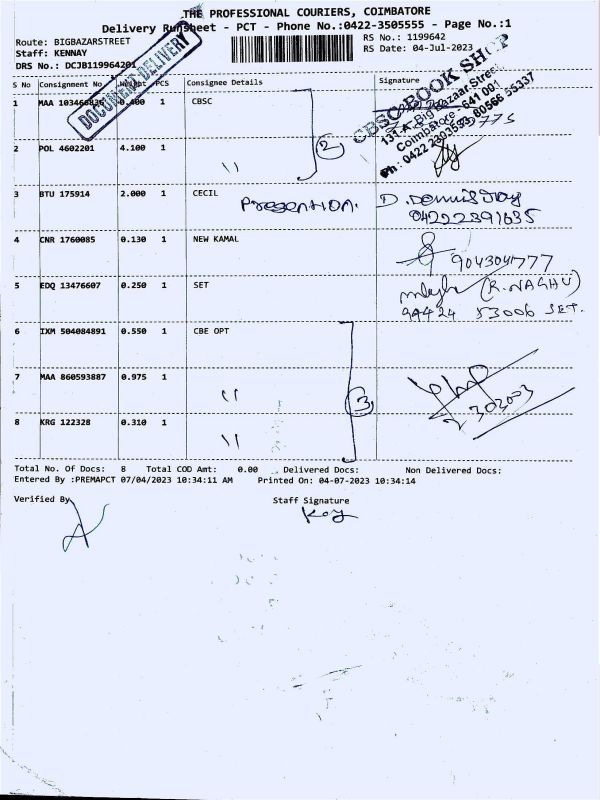 THE PROFESSIONAL COURIERS, COIMBATORE
Delivery Runsheet - PCT - Phone No.:0422-3505555 - Page No.:1
Route: BIGBAZARSTREET
RS No.: 1199642
Staff: KENNAY
RS Date: 04-Jul-2023
DRS No.: DCJB119964201
DOCUMENT DELIVERY
S No Consignment No Weight PCS Consignee Details Signature
1 MAA 103466836 0.400 1 CBSC
CBSC BOOK SHOP
131-A, Big Bazaar Street,
Coimbatore - 641 001
Ph : 0422 2303593 80566 55337
2 POL 4602201 4.100 1 11
2
3 BTU 175914 2.000 1 CECIL
04222391635
4 CNR 1760085 0.130 1 NEW KAMAL
9043041777
5 EDQ 13476607 0.250 1 SET
(R. NAGHU)
94424 53006 SET.
6 IXM 504084891 0.550 1 CBE OPT
7 MAA 860593887 0.975 1 11
3
303003
8 KRG 122328 0.310 1 11
Total No. Of Docs: 8 Total COD Amt: 0.00 Delivered Docs: Non Delivered Docs:
Entered By :PREMAPCT 07/04/2023 10:34:11 AM Printed On: 04-07-2023 10:34:14
Verified By
Staff Signature